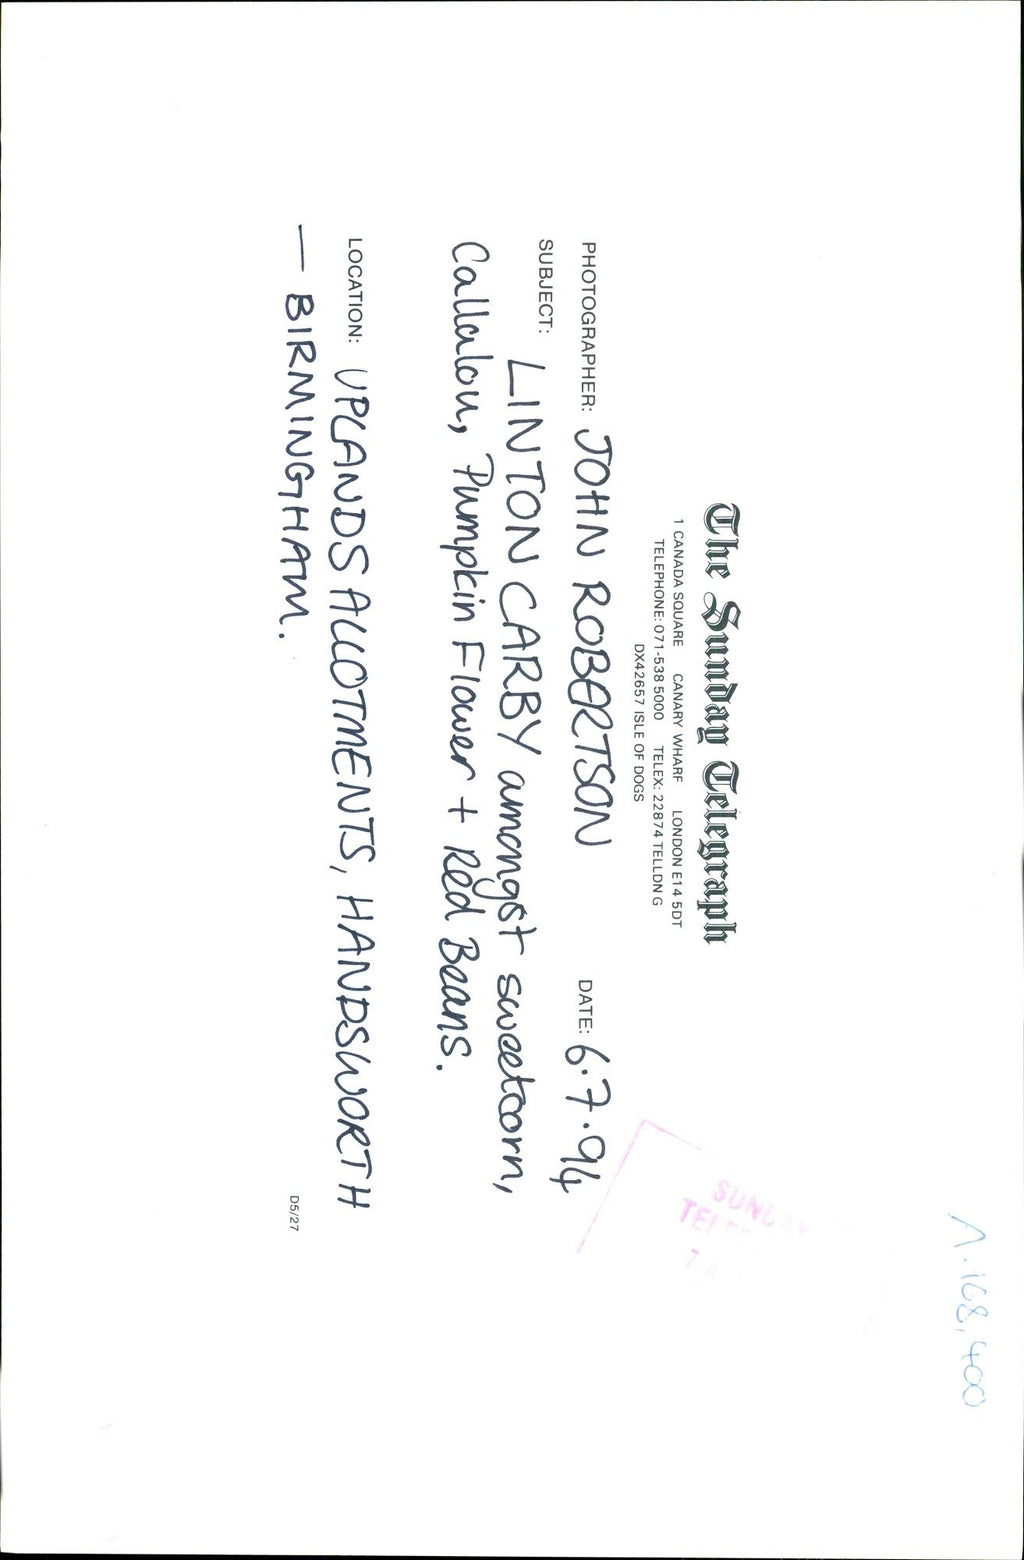 The Sunday Telegraph
1 CANADA SQUARE CANARY WHARF LONDON E14 5DT
TELEPHONE: 071-538 5000 TELEX: 22874 TELLDN G
DX42657 ISLE OF DOGS
PHOTOGRAPHER: JOHN ROBERTSON DATE: 6.7.94
SUBJECT: LINTON CARBY amongst sweetcorn,
Callalou, Pumpkin Flower + Red Beans.
LOCATION: UPLANDS ALLOTMENTS, HANDSWORTH
— BIRMINGHAM.
D5/27
SUNDAY
7
A.168,400